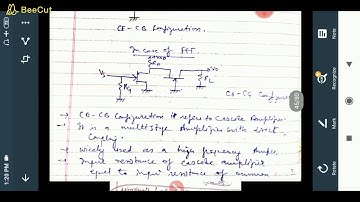 BeeCut
CE-CB Configuration.
In case of FET
RD
Vo
Vs
RG
RL
CS-CG Configur
45/90
→ CE-CB Configuration is refers to Cascode Amplifier.
→ It is a multistage Amplifier with direct
Coupling.
→ widely used as a high frequency Amplifi
→ Input resistance of cascode amplifier
equal to input resistance of common
1:20 PM